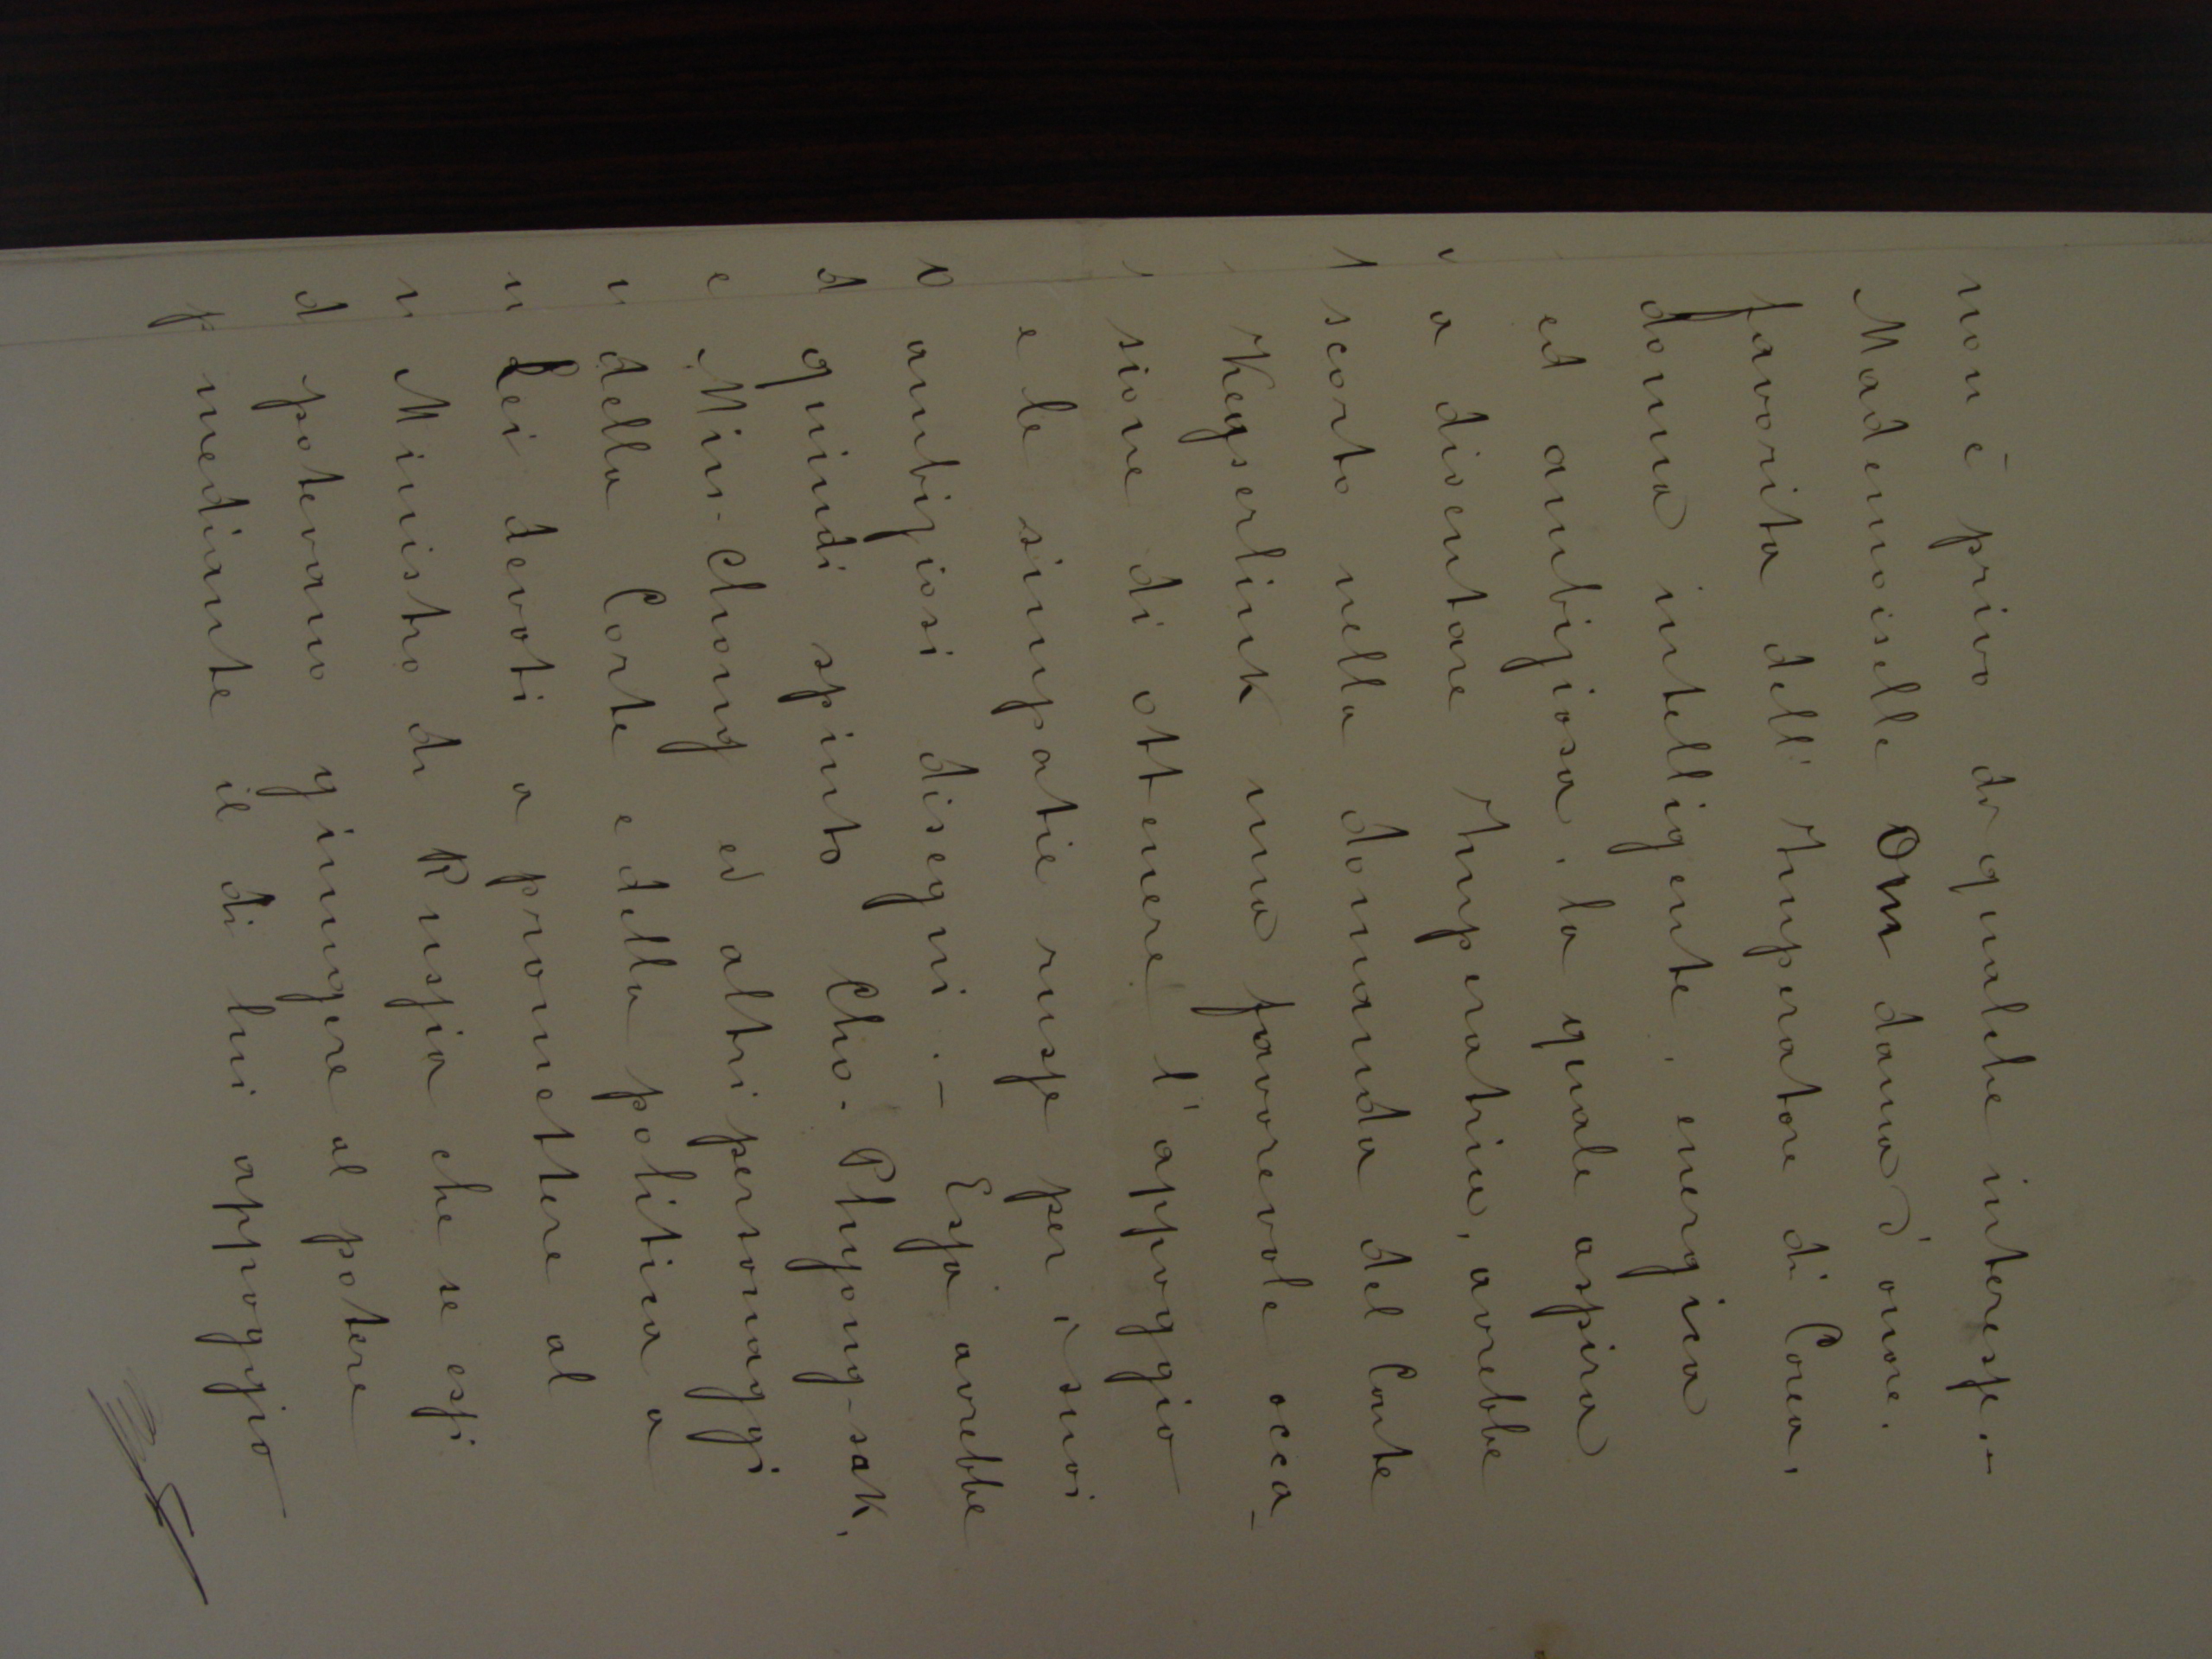 non è privo di qualche interesse. -
Mademoiselle Om dama d'onore,
favorita dell' Imperatore di Corea,
donna intelligente, energica
ed ambiziosa, la quale aspira
a diventare Imperatrice, avrebbe
scorto nella domanda del Conte
Keyserlink una favorevole occa-
sione di ottenere l'appoggio
e le simpatie russe per i suoi
ambiziosi disegni. - Essa avrebbe
quindi spinto Cho-Phyong-sak,
Min-Chong ed altri personaggi
della Corte e della politica a
Lei devoti a promettere al
Ministro di Russia che se essi
potevano giungere al potere
mediante il di lui appoggio